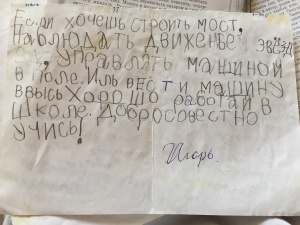 Если хочешь строить мост,
Наблюдать движенье звёзд
, управлять машиной
в поле. Иль вести машину
ввысь Хорошо работай в
школе. Добросовестно
учись!
Игорь